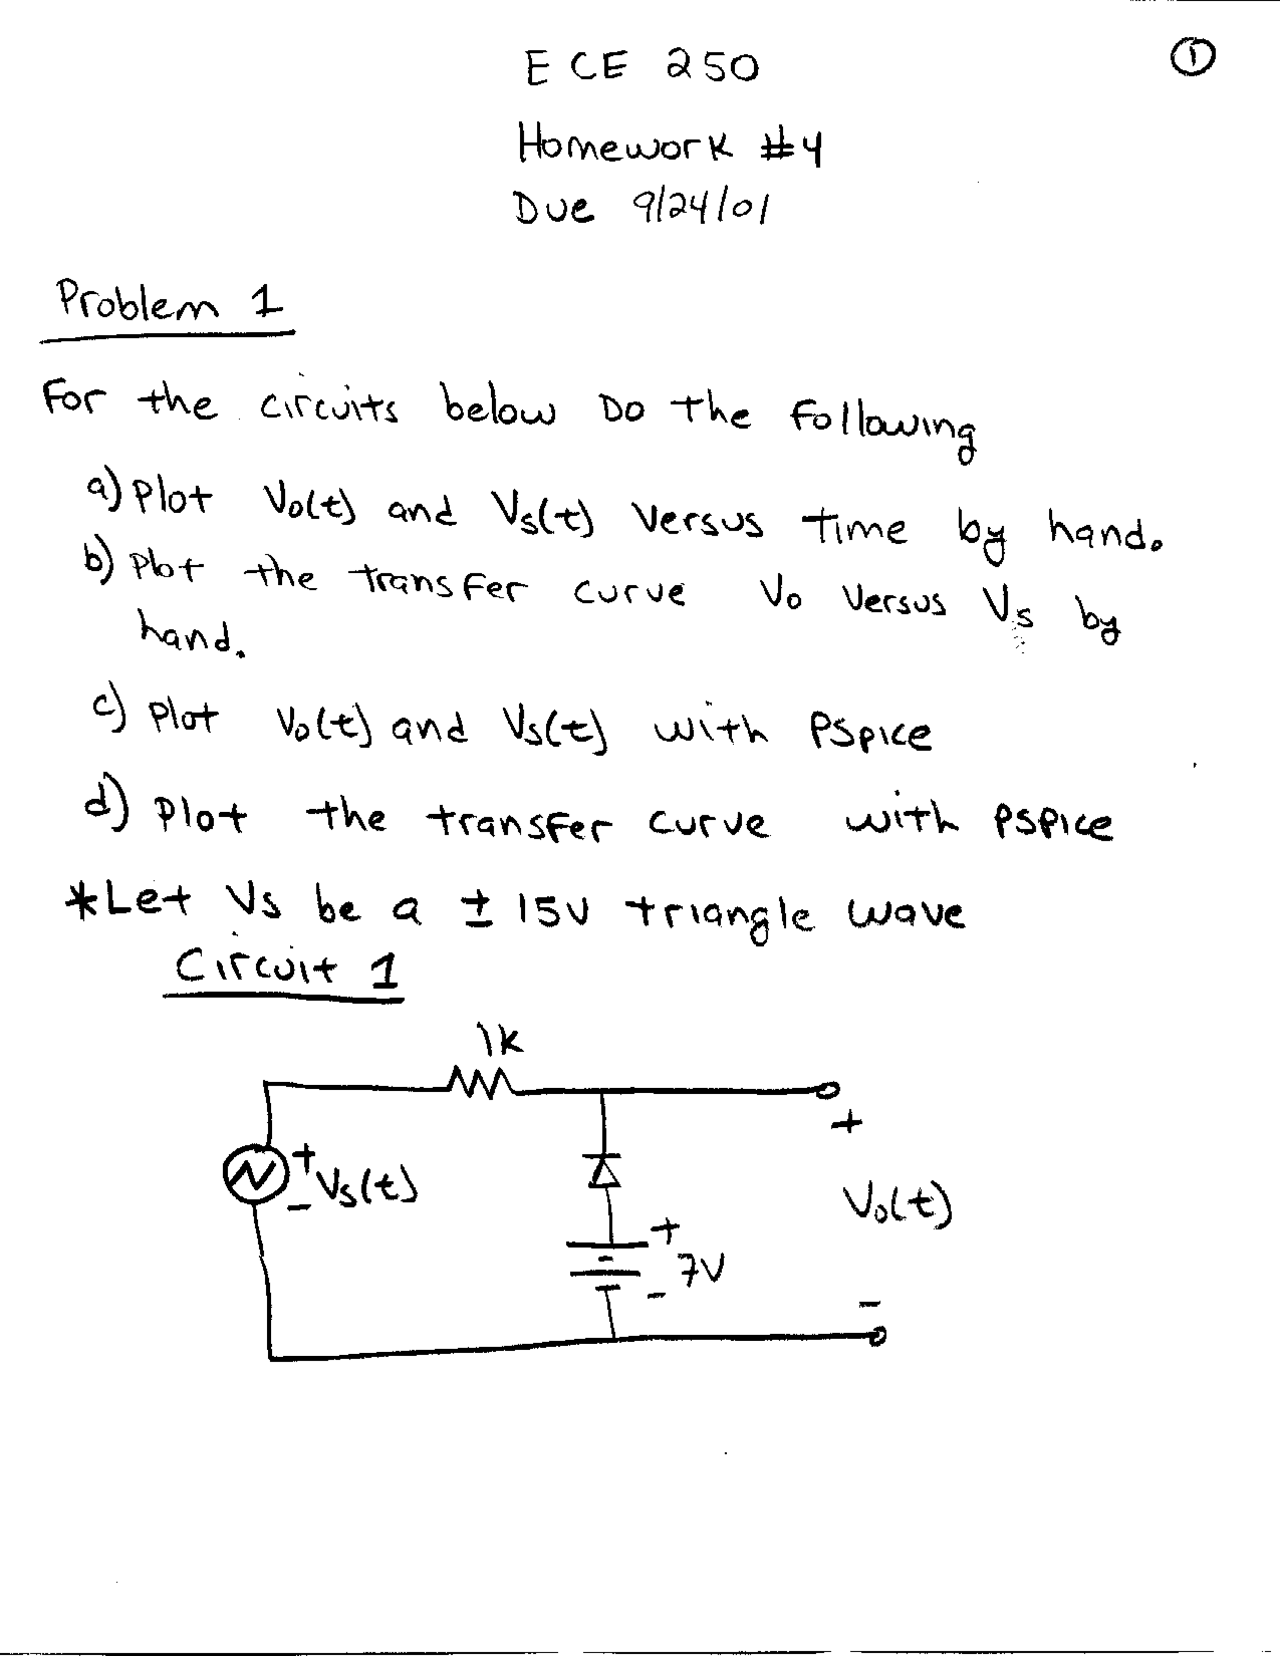 ①
ECE 250
Homework #4
Due 9/24/01
Problem 1
For the circuits below Do the Following
a) Plot Vo(t) and Vs(t) Versus Time by hand.
b) Plot the transfer curve Vo Versus Vs by
hand.
c) Plot Vo(t) and Vs(t) with PSpice
d) Plot the transfer curve with PSPice
*Let Vs be a ± 15V triangle wave
Circuit 1
1K
+
+
Vs(t)
-
Vo(t)
+
7V
-
-